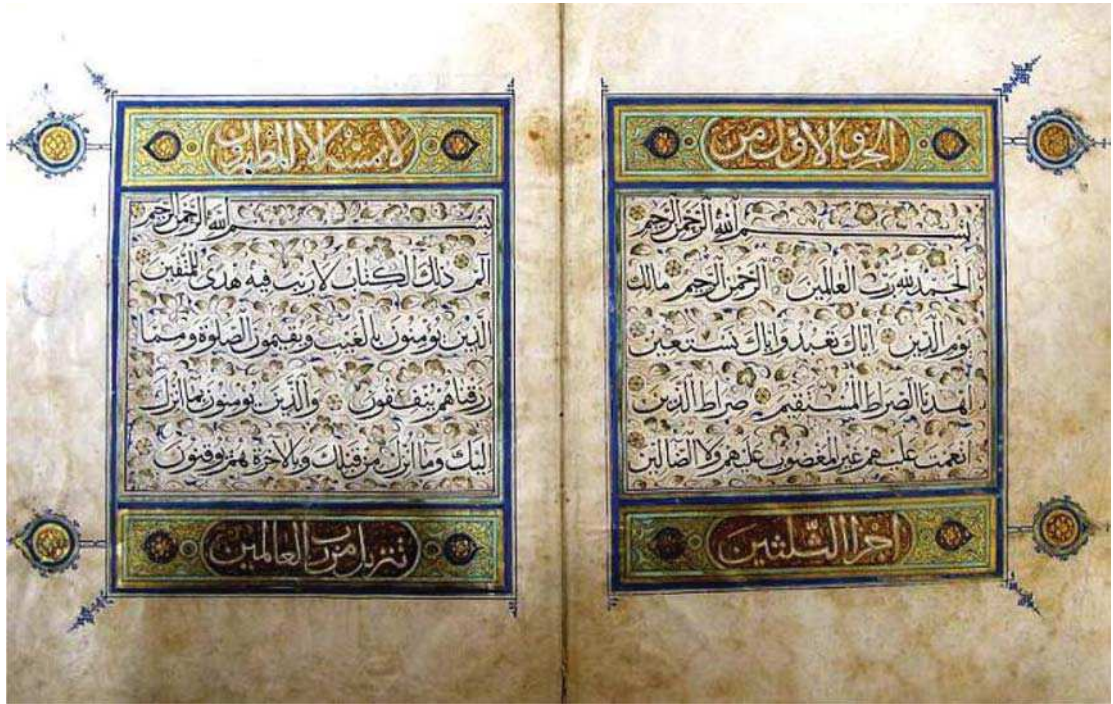 الجزو الاول من
بسم الله الرحمن الرحيم
الحمد لله رب العالمين الرحمن الرحيم مالك
يوم الدين اياك نعبد واياك نستعين
اهدنا الصراط المستقيم صراط الذين
انعمت عليهم غير المغضوب عليهم ولا الضالين
اجزا الثلثين
لا يمسه الا المطهرون
بسم الله الرحمن الرحيم
الم ذلك الكتاب لا ريب فيه هدى للمتقين
الذين يؤمنون بالغيب ويقيمون الصلوة ومما
رزقناهم ينفقون والذين يؤمنون بما انزل
اليك وما انزل من قبلك وبالآخرة هم يوقنون
تنزيل من رب العالمين